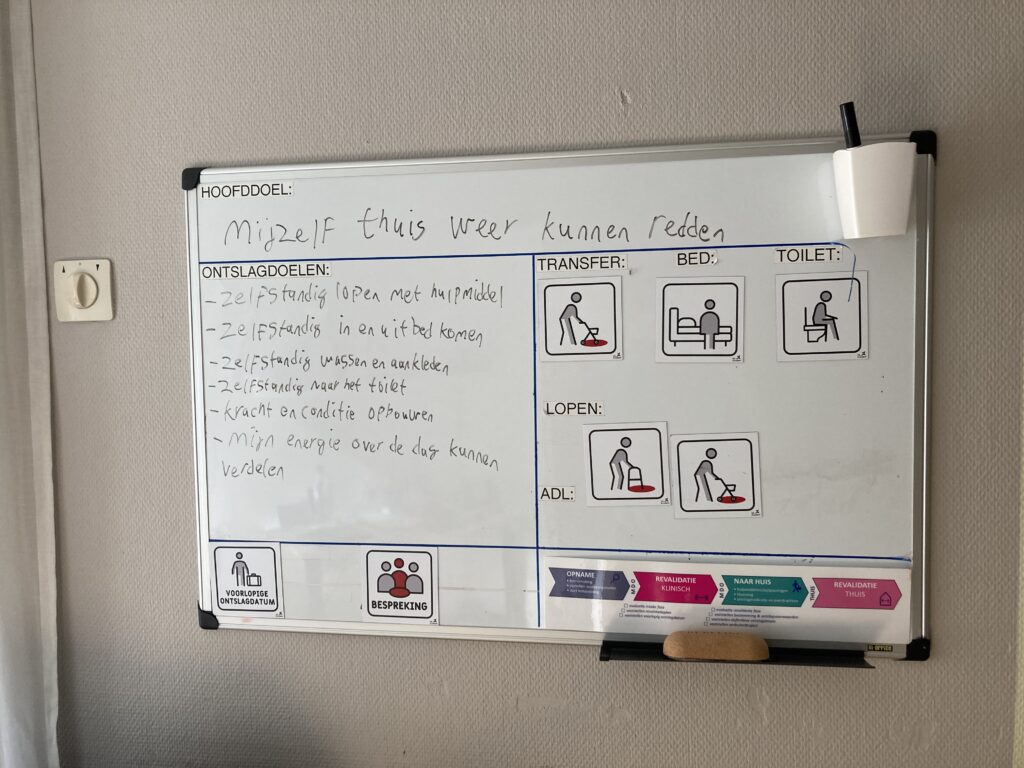 HOOFDDOEL:
Mijzelf thuis weer kunnen redden
ONTSLAGDOELEN:
- Zelfstandig lopen met hulpmiddel
- Zelfstandig in en uit bed komen
- Zelfstandig wassen en aankleden
- Zelfstandig naar het toilet
- kracht en conditie opbouwen
- Mijn energie over de dag kunnen
verdelen
TRANSFER:
BED:
TOILET:
LOPEN:
ADL:
VOORLOPIGE
ONTSLAGDATUM
BESPREKING
OPNAME
MDO
REVALIDATIE
KLINISCH
MDO
NAAR HUIS
THUIS
REVALIDATIE
THUIS